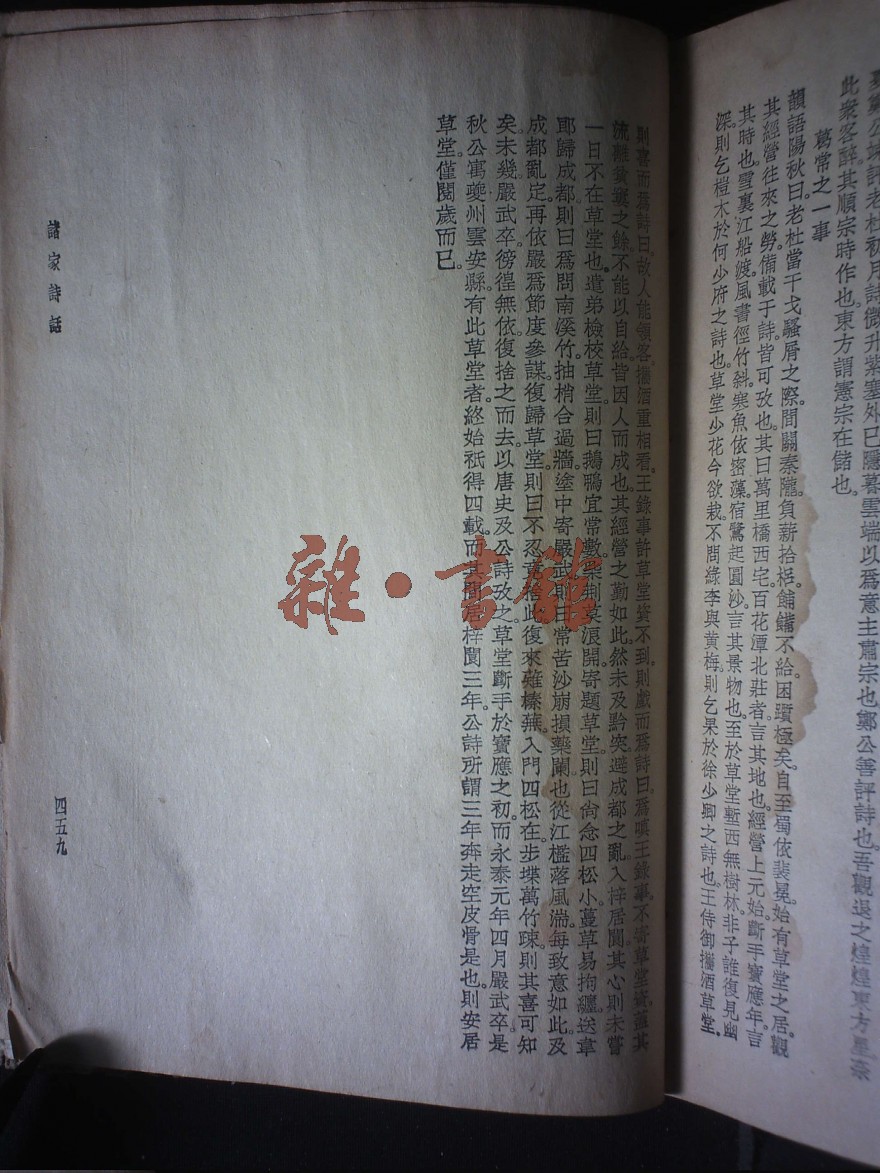 此衆客醉其順宗時作也。東方謂憲宗在儲也。
葛常之一事
韻語陽秋曰。老杜當干戈騷屑之際。間關秦隴。負薪拾梠。餔糒不給。困躓極矣。自至蜀依裴冕。始有草堂之居。觀
其經營往來之勞。備載于詩。皆可攷也。其曰萬里橋西宅。百花潭北莊者。言其地也。經營上元始。斷手寶應年。言
其時也。雪裏江船渡。風書徑竹斜。寒魚依密藻。宿鷺起圓沙。言其景物也。至於草堂塹西無樹林。非子誰復見幽
深。則乞榿木於何少府之詩也。草堂少花今欲栽。不問綠李與黄梅。則乞果於徐少卿之詩也。王侍御攜酒草堂。
則喜而爲詩曰。故人能領客。攜酒重相看。王錄事許草堂貲不到。則戲而爲詩曰。爲嗔王錄事。不寄草堂貲。蓋其
流離貧窶之餘。不能以自給。皆因人而成也。其經營之勤如此。然未及黔突。避成都之亂。入梓居閬。其心則未嘗
一日不在草堂也。遣弟檢校草堂。則曰鵝鴨宜常數。柴荆莫浪開。寄題草堂。則曰尙念四松小。蔓草易拘纏。送韋
耶歸成都。則曰爲問南溪竹。抽梢合過牆。塗中寄嚴武。則曰常苦沙崩損藥闌。也從江檻落風湍。每致意如此。及
成都亂定。再依嚴爲節度參謀。復歸草堂。則曰不忍竟舍此。復來薙榛蕪。入門四松在。步堞萬竹疎。則其喜可知
矣。未幾嚴武卒。徬徨無依。復捨之而去。以唐史及公詩攷之。草堂斷手於寶應之初。而永泰元年四月嚴武卒。是
秋公寓夔州雲安縣。有此草堂者。終始衹得四載。而其間居梓閬三年。公詩所謂三年奔走空皮骨是也。則安居
草堂僅閱歲而已。
諸家詩話
四五九
雜·書館